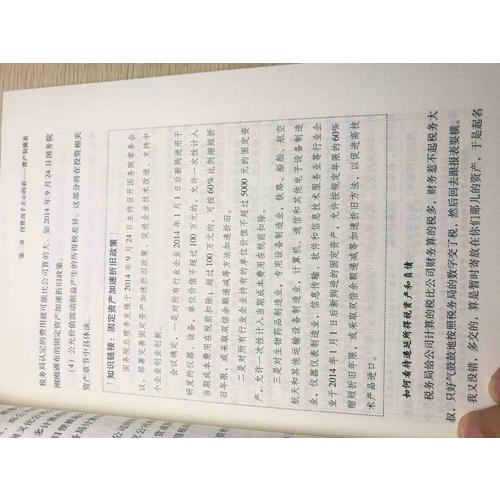 第二章 投资高手关心的表——资产负债表
税务局认定的费用就可能比公司算的大。如 2014 年 9 月 24 日国务院
刚刚颁布的固定资产加速折旧政策。
（4）公允价值波动损益产生的所得税差异。这部分将在投资相关
资产章节中具体谈。
知识链接：固定资产加速折旧政策
国务院总理李克强于 2014 年 9 月 24 日主持召开国务院常务会
议，部署完善固定资产加速折旧政策、促进企业技术改造、支持中
小企业创业创新。
会议确定，一是对所有行业企业 2014 年 1 月 1 日后新购进用于
研发的仪器、设备，单位价值不超过 100 万元的，允许一次性计入
当期成本费用在税前扣除；超过 100 万元的，可按 60% 比例缩短折
旧年限，或采取双倍余额递减等方法加速折旧。
二是对所有行业企业持有的单位价值不超过 5000 元的固定资
产，允许一次性计入当期成本费用在税前扣除。
三是对生物药品制造业，专用设备制造业，铁路、船舶、航空
航天和其他运输设备制造业，计算机、通信和其他电子设备制造
业，仪器仪表制造业，信息传输、软件和信息技术服务业等行业企
业于 2014 年 1 月 1 日后新购进的固定资产，允许按规定年限的 60%
缩短折旧年限，或采取双倍余额递减等加速折旧方法，以促进高技
术产品进口。
如何看待递延所得税资产和负债
税务局给公司计算的税比公司财务算的税多，财务惹不起税务大
叔，只好气鼓鼓地按照税务局的数字交了税，然后回去跟报表耍横。
我又没错，多交的，算是暂时寄放在你们那儿的资产，于是起名